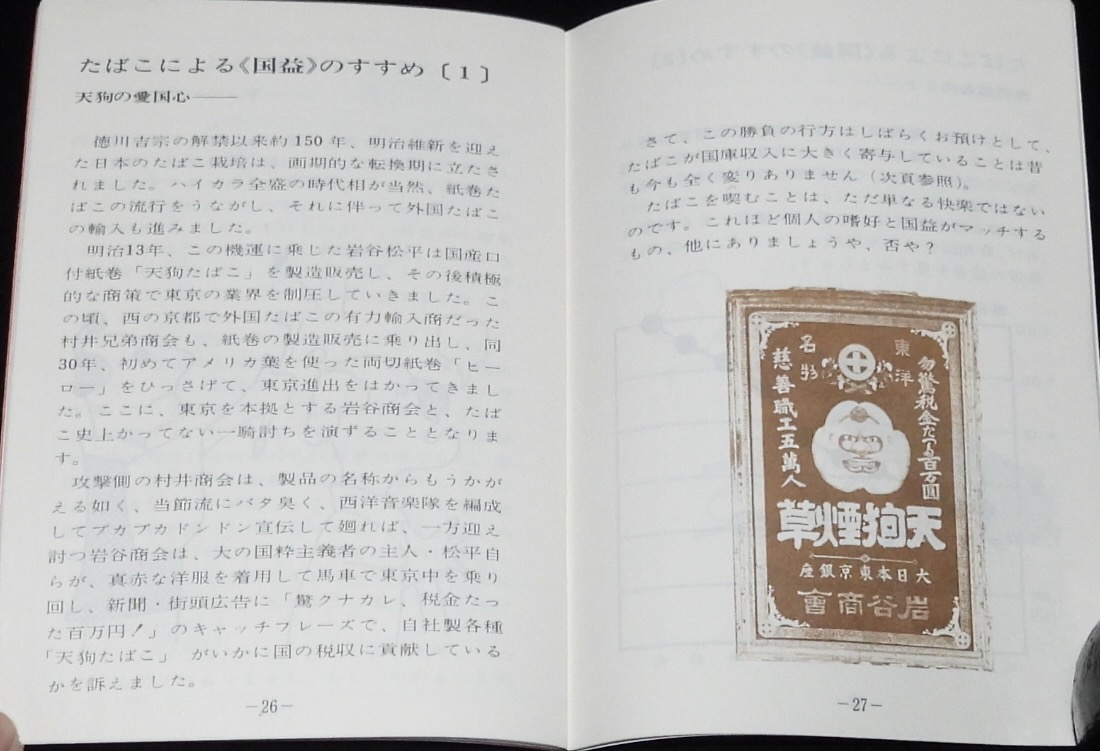 たばこによる《国益》のすすめ〔1〕
天狗の愛国心――
徳川吉宗の解禁以来約150年、明治維新を迎え
た日本のたばこ栽培は、画期的な転換期に立たさ
れました。ハイカラ全盛の時代相が当然、紙巻た
ばこの流行をうながし、それに伴って外国たばこ
の輸入も進みました。
明治13年、この機運に乗じた岩谷松平は国産口
付紙巻「天狗たばこ」を製造販売し、その後積極
的な商策で東京の業界を制圧していきました。こ
の頃、西の京都で外国たばこの有力輸入商だった
村井兄弟商会も、紙巻の製造販売に乗り出し、同
30年、初めてアメリカ葉を使った両切紙巻「ヒー
ロー」をひっさげて、東京進出をはかってきまし
た。ここに、東京を本拠とする岩谷商会と、たば
こ史上かってない一騎討ちを演ずることとなりま
す。
攻撃側の村井商会は、製品の名称からもうかが
える如く、当節流にバタ臭く、西洋音楽隊を編成
してブカブカドンドン宣伝して廻れば、一方迎え
討つ岩谷商会は、大の国粋主義者の主人・松平自
らが、真赤な洋服を着用して馬車で東京中を乗り
回し、新聞・街頭広告に「驚クナカレ、税金たっ
た百万円!」のキャッチフレーズで、自社製各種
「天狗たばこ」がいかに国の税収に貢献している
かを訴えました。
—26—
さて、この勝負の行方はしばらくお預けとして、
たばこが国庫収入に大きく寄与していることは昔
も今も全く変りありません(次頁参照)。
たばこを喫むことは、ただ単なる快楽ではない
のです。これほど個人の嗜好と国益がマッチする
もの、他にありましょうや、否や?
勿驚税金たつた百万圓
東洋
名物
慈善職工五萬人
天狗煙草
大日本東京銀座
岩谷商會
—27—